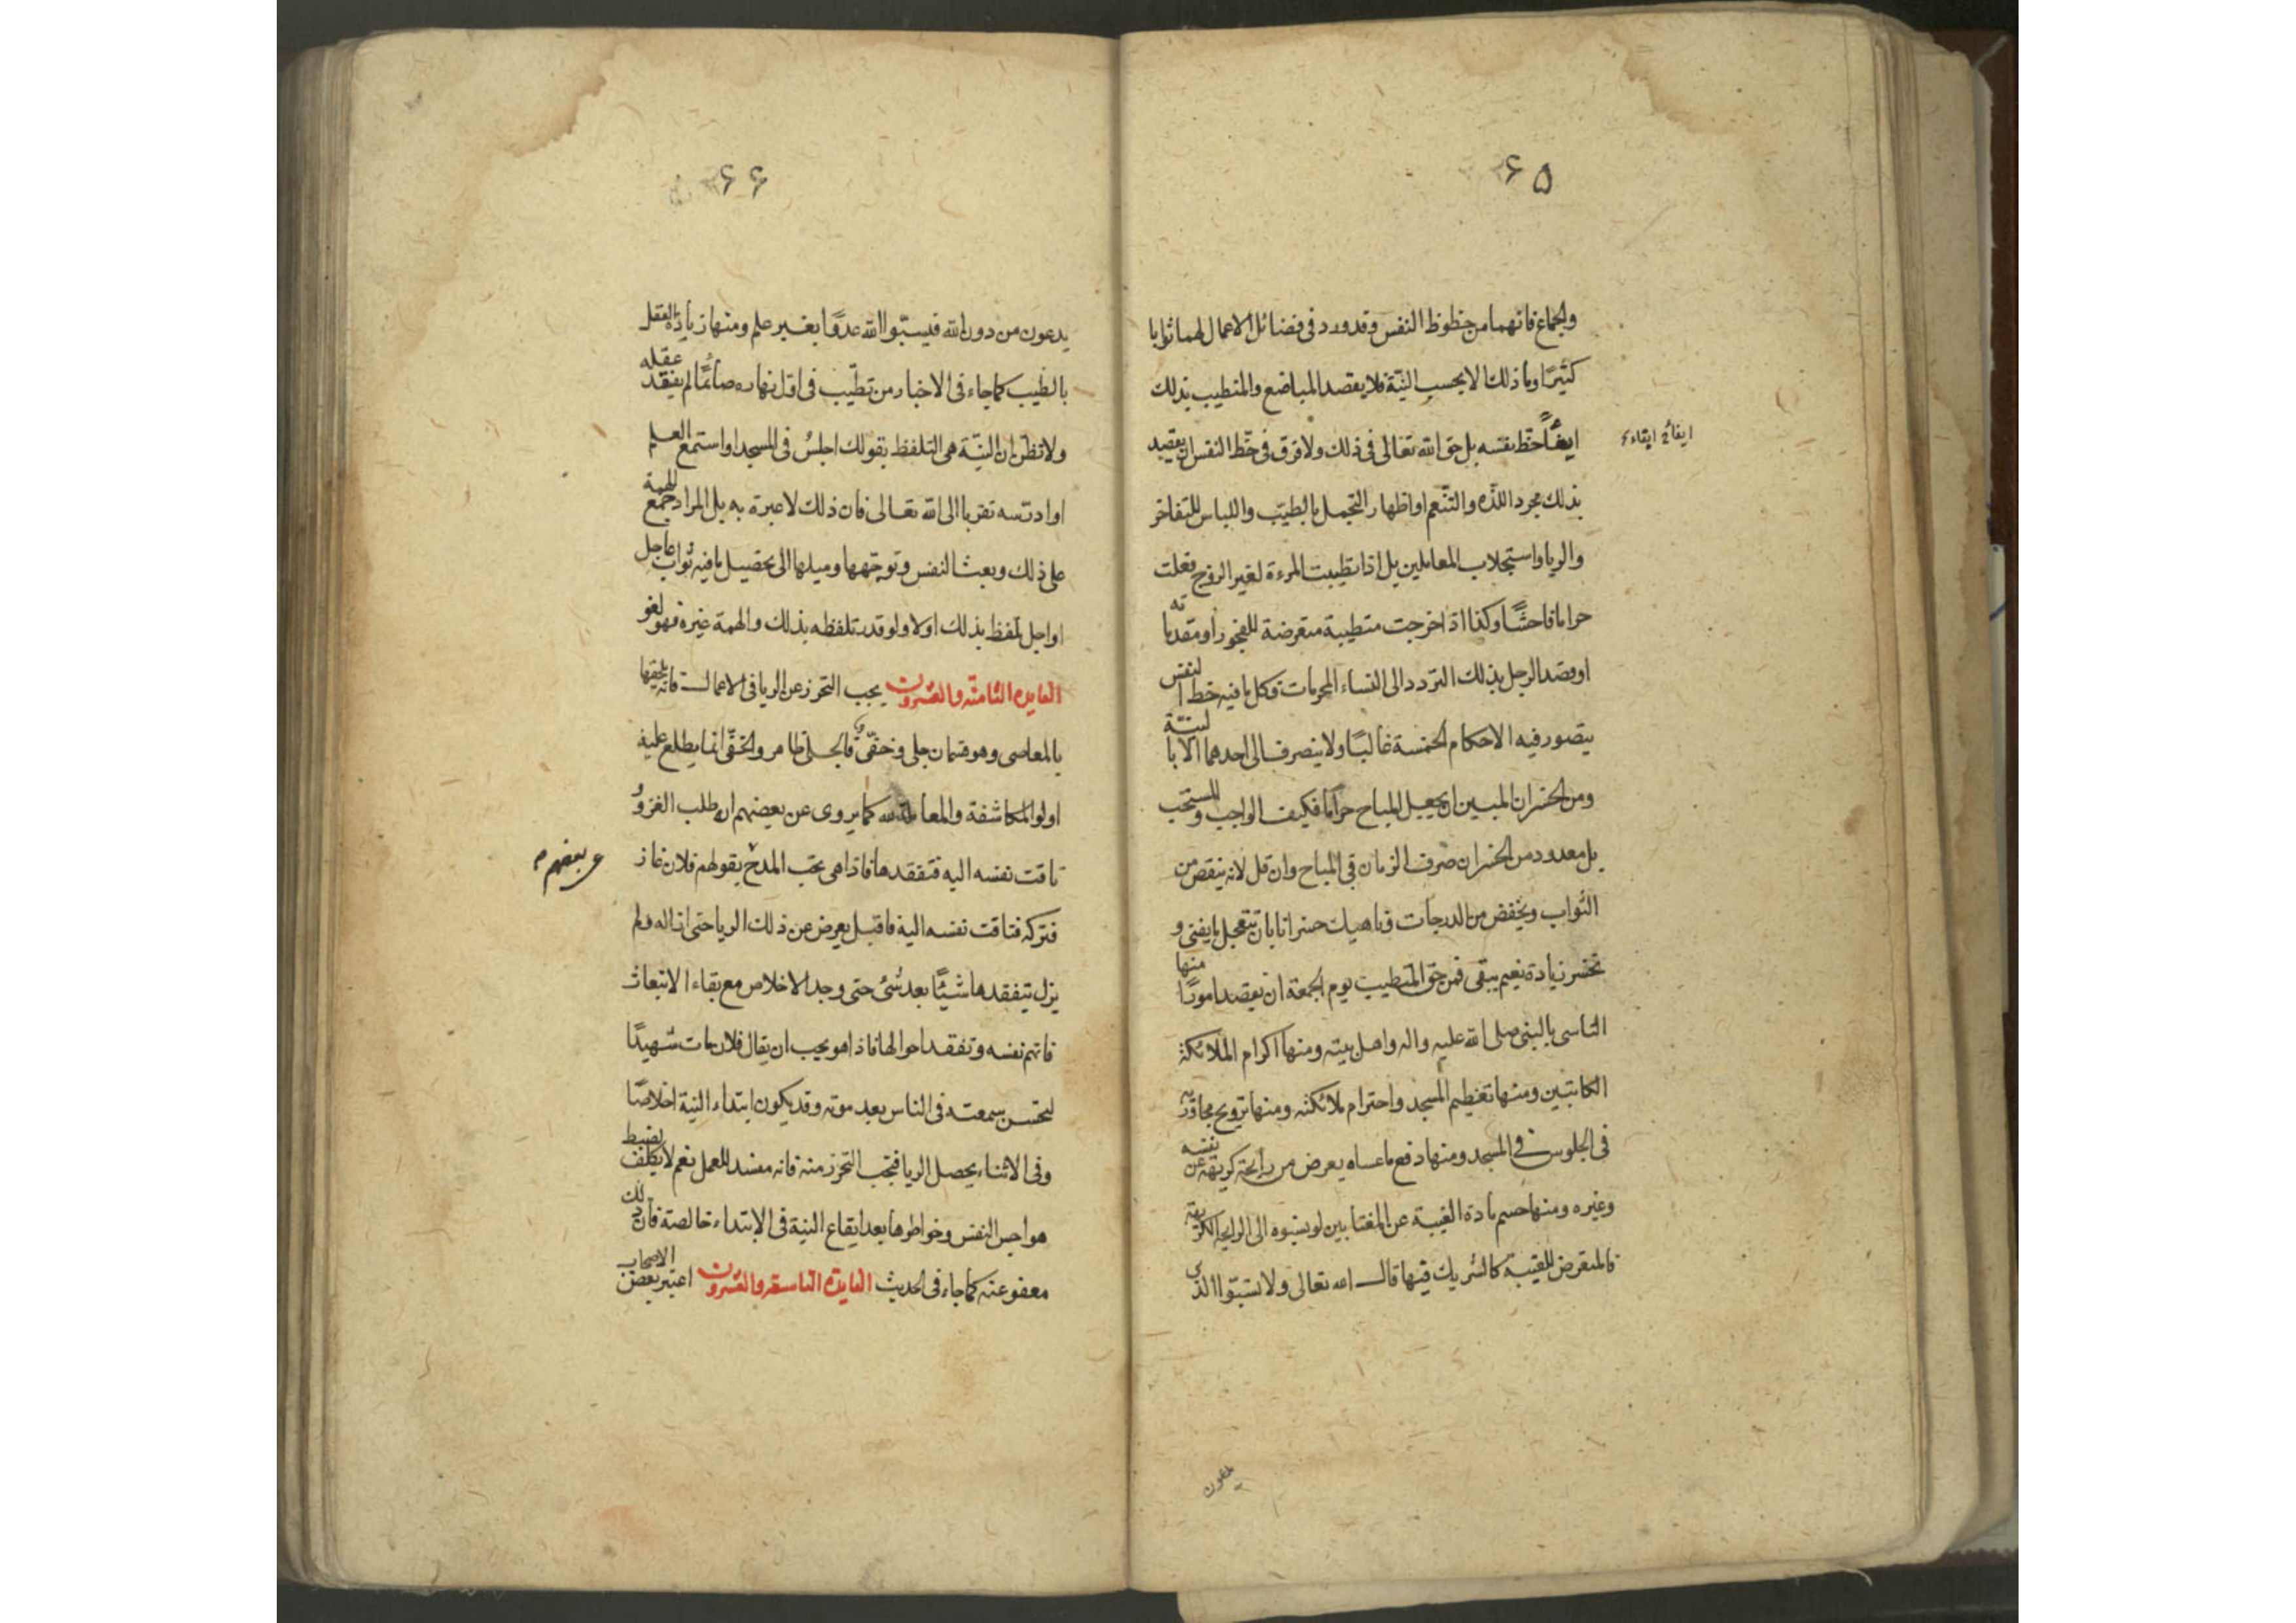 ۶۵
والجماع فانهما من حظوظ النفس وقد ورد فى فضائل الاعمال لهما ثوابا
كثيرًا وما ذلك الا بحسب النيّة فلا يقصد المباضع والمتطيب بذلك
ايفاءً حظ نفسه بل حق الله تعالى فى ذلك ولا فرق فى حظ النفس ان يقصد
ايفاءً ايقاء
بذلك مجرد اللذه والتنّعم او اظهار التجمل بالطيب واللباس للتفاخر
والريا واستجلاب المعاملين بل اذا تطيبت المرءة لغير الزوج فعلت
حراما فاحشًا وكذا اذا خرجت متطيبة متعرضة للفجور او مقدماته
او قصد الرجل بذلك التردد الى النساء المحرمات فكل ما فيه حظ النفس
يتصور فيه الاحكام الخمسة غالبًا ولا ينصرف الى احدهما الا بالنيّة
ومن الخسران المبين ان يجعل المباح حرامًا فكيف الواجب والمستحب
بل معدود من الخسران صرف الزمان فى المباح وان قل لانه ينقص من
الثواب ويخفض من الدرجات وناهيك خسرانا بان تتعجل ما يفنى و
تخسر زيادة نعيم يبقى فمن حق المتطيب يوم الجمعة ان يقصد امورًا منها
التاسى بالنبى صلى الله عليه واله واهل بيته ومنها اكرام الملائكة
الكاتبين ومنها تعظيم المسجد واحترام ملائكته ومنها ترويح مجاوريه
فى الجلوس فى المسجد ومنها دفع ما عساه يعرض من رايحة كريهة عن نفسه
وغيره ومنها حسم مادة الغيبة عن المغتابين لو نسبوه الى الرايحة الكريهة
فالمتعرض للغيبة كالشريك فيها قال الله تعالى ولا تسبّوا الذى
يدعون
۶۶
يدعون من دون الله فيسبّوا الله عدوًا بغير علم ومنها زيادة العقل
بالطيب كما جاء فى الاخبار من تطيّب فى اول نهاره صائمًا لم يفقد عقله
ولا تظن ان النيّة هى التلفظ بقولك اجلسُ فى المسجد او استمع العلم
او ادرسه تقربا الى الله تعالى فان ذلك لا عبرة به بل المراد جمع الهمة
على ذلك وبعث النفس وتوجّهها وميلها الى تحصيل ما فيه ثواب عاجل
او اجل تلفظ بذلك اولا ولو قدر تلفظه بذلك والهمة غيره فهو لغو
الفايده الثامنة والعشرون يجب التحرز عن الريا فى الاعمال فانه يلحقها
بالمعاصى وهو قسمان جلى وخفىّ فالجلى ظاهر والخفى انما يطلع عليه
اولوا المكاشفة والمعاملة لله كما يروى عن بعضهم انه طلب الغزو
و
تاقت نفسه اليه فتفقدها فاذا هى تحب المدح بقولهم فلان غاز
عن بعضهم م
فتركه فتاقت نفسه اليه فاقبل يعرض عن ذلك الريا حتى ازاله ولم
يزل يتفقدها شيئًا بعد شئ حتى وجد الاخلاص مع بقاء الانبعاث
فاتهم نفسه وتفقد احوالها فاذا هو يحب ان يقال فلان مات شهيدًا
لتحسن سمعته فى الناس بعد موته وقد يكون ابتداء النية اخلاصًا
وفى الاثناء يحصل الريا فيجب التحرز منه فانه مفسد للعمل نعم لا يكلف بضبط
هواجس النفس وخواطرها بعد ايقاع النية فى الابتداء خالصة فان ذلك
معفو عنه كما جاء فى الحديث الفايدة التاسعة والعشرون اعتبر بعض الاصحاب